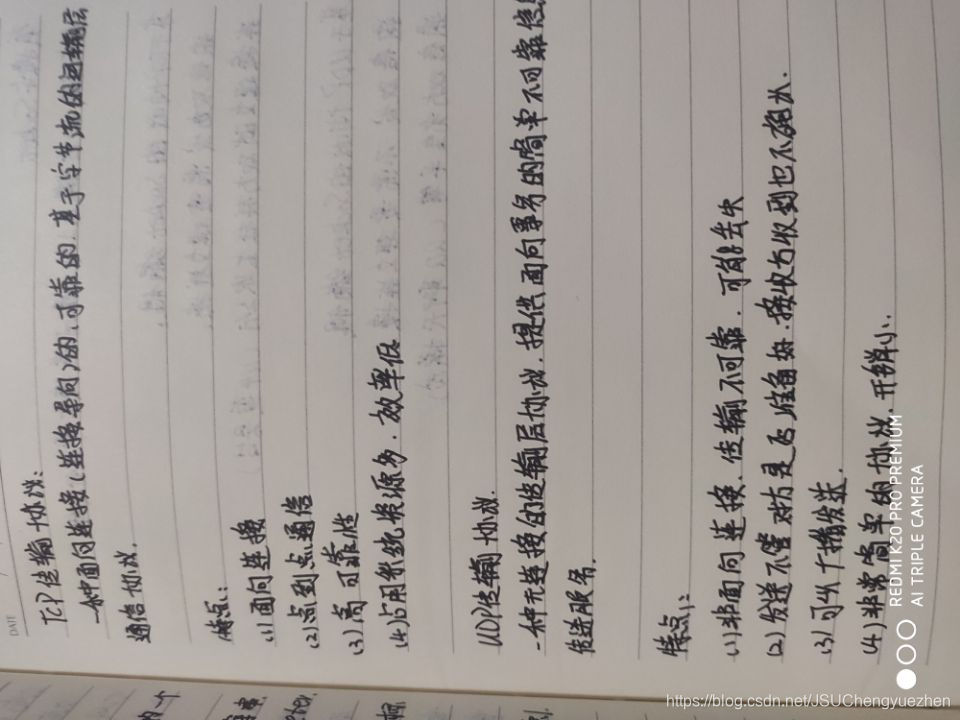 DATE
TCP传输协议:
一种面向连接(连接导向)的、可靠的、基于字节流的运输层
通信协议.
特点:
(1)面向连接
(2)点到点通信
(3)高可靠性
(4)占用系统资源多.效率低
UDP传输协议.
一种无连接的传输层协议.提供面向事务的简单不可靠信息
传送服务.
特点:
(1)非面向连接、传输不可靠.可能丢失
(2)发送不管对方是否准备好.接收方收到也不确认.
(3)可以广播发送.
(4)非常简单的协议.开销小.
REDMI K20 PRO PREMIUM
AI TRIPLE CAMERA
https://blog.csdn.net/JSUChengyuezhen